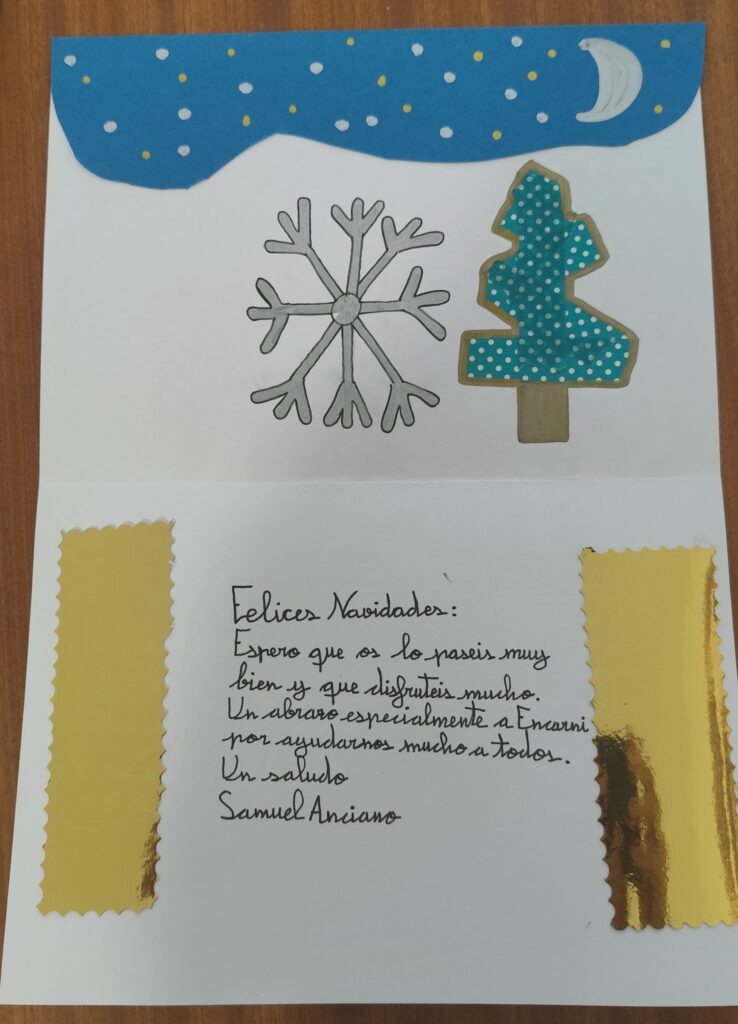 Felices Navidades:
Espero que os lo paseis muy
bien y que disfruteis mucho.
Un abrazo especialmente a Encarni
por ayudarnos mucho a todos.
Un saludo
Samuel Anciano